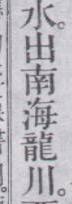 水。出南海龍川。